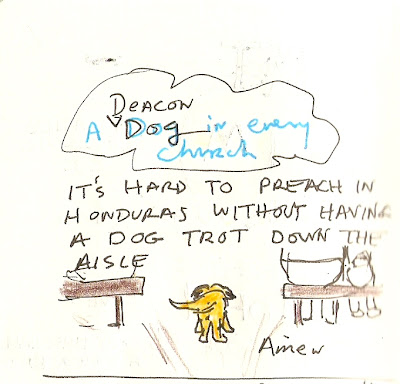 DEACON
A Dog in every
church
IT'S HARD TO PREACH IN
HONDURAS WITHOUT HAVING
A DOG TROT DOWN THE
AISLE